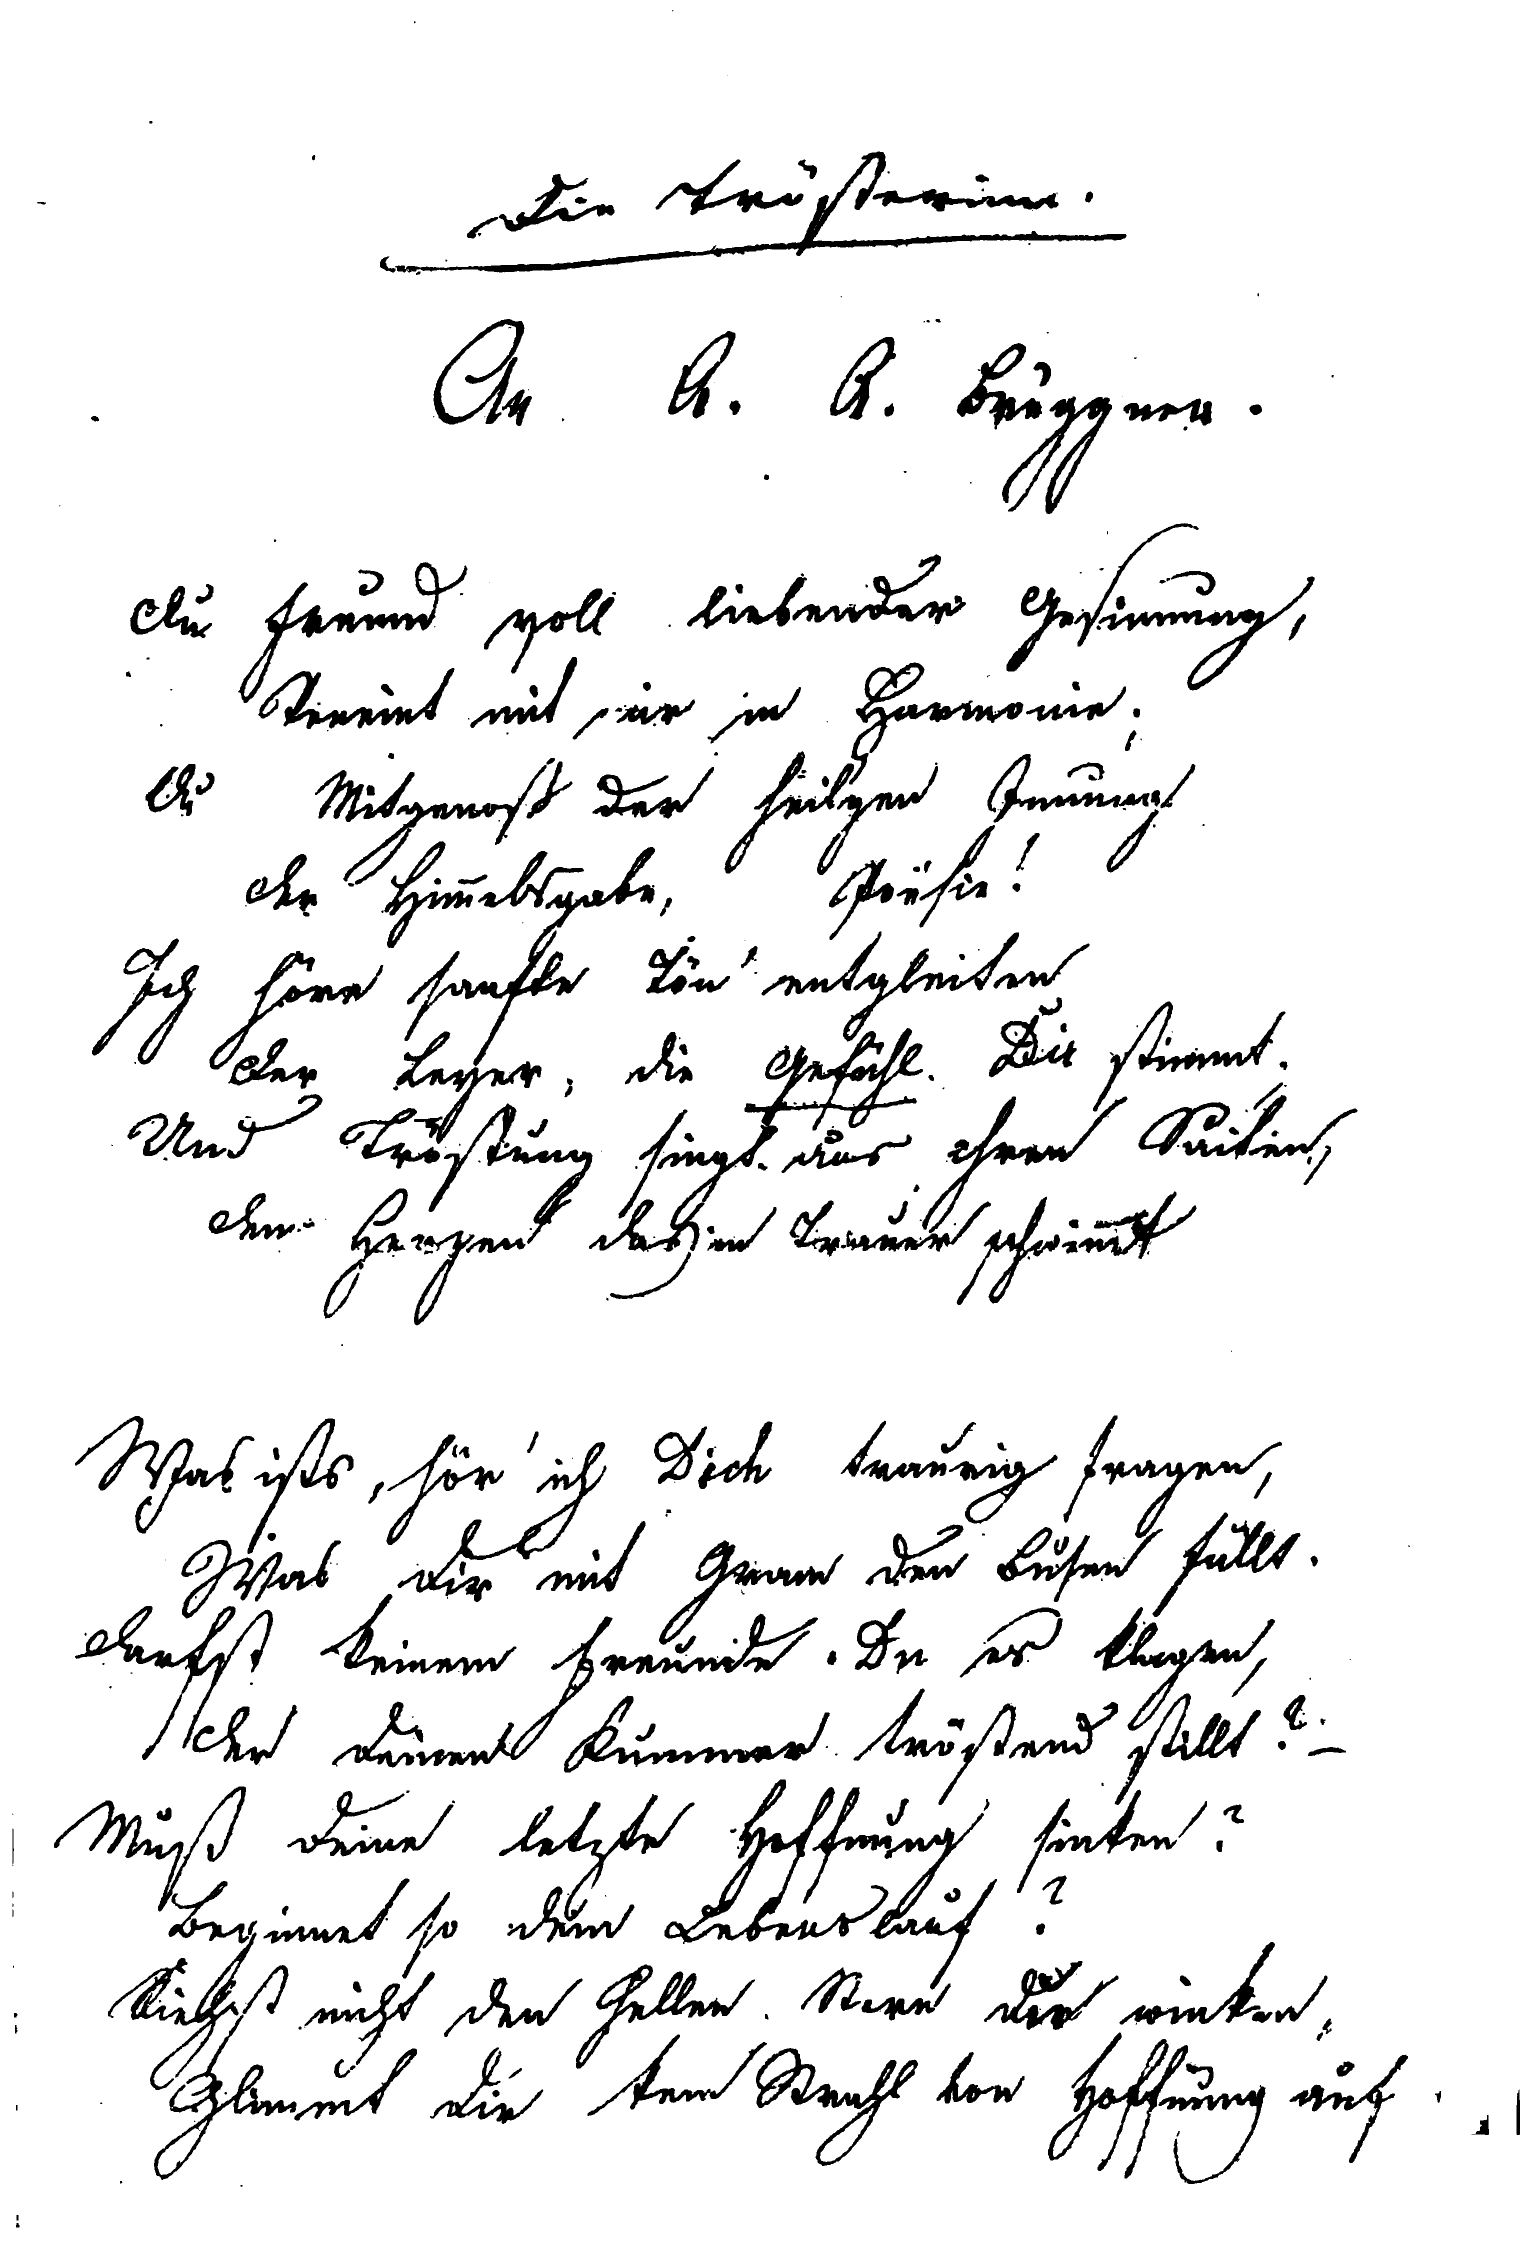 Die Trösterinn.
An A. A. Brüggner.
Du Freund voll liebender Gesinnung,
Vereint mit mir in Harmonie;
Du Mitgenoß der heil'gen Innung
Der Him̅elsgabe, Poësie!
Ich höre sanfte Tön' entgleiten
Der Leyer, die Gefühl Dir stimmt.
Und Tröstung singt aus ihren Saiten,
Dem Herzen das in Trauer schwim̅t
Was ists, hör' ich Dich traurig fragen,
Was dir mit Gram den Busen füllt.
Darfst keinem Freunde Du es klagen,
Der deinen Kummer tröstend stillt? –
Muß deine letzte Hoffnung sinken?
Beginnet so dein Lebenslauf?
Siehst nicht den hellen Stern dir winken,
Glimmt dir kein Strahl von Hoffnung auf